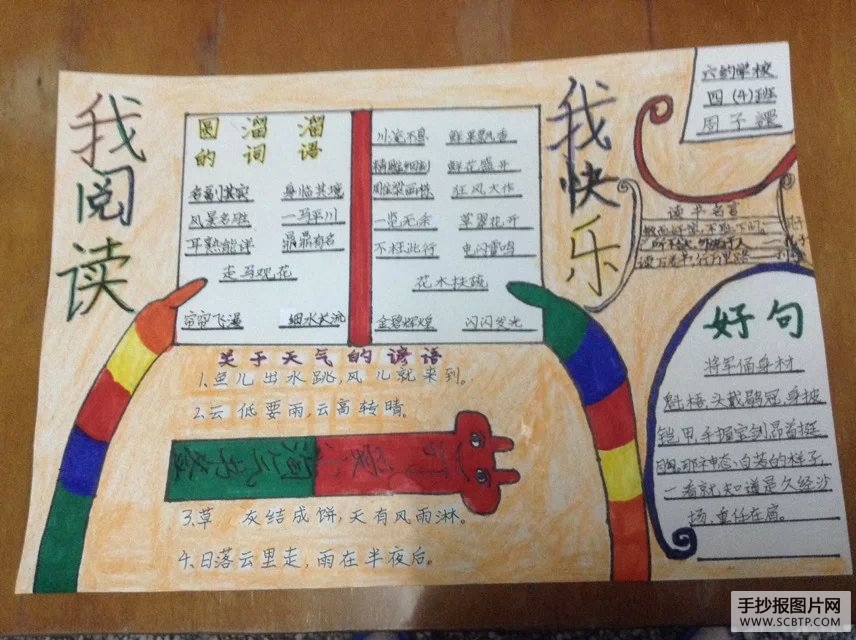 我阅读
我快乐
圆溜溜
的词语
名副其实 身临其境
风景名胜 一马平川
耳熟能详 鼎鼎有名
走马观花
帘帘飞瀑 细水长流
川流不息 鲜果飘香
精雕细刻 鲜花盛开
狂风大作
一览无余 草翠花开
不枉此行 电闪雷鸣
花木扶疏
金碧辉煌 闪闪发光
关于天气的谚语
1.鱼儿出水跳,风儿就来到。
2.云低要雨,云高转晴。
3.草 灰结成饼,天有风雨淋。
4.日落云里走,雨在半夜后。
学校
四(4)班
周子
读书名言
敏而好学,不耻下问。
读万卷书,行万里路
好句
将军俑身材
魁梧,头戴鹖冠,身披
铠甲,手握宝剑,昂首挺
胸。那神态自若的样子,
一看就知道是久经沙
场,重任在肩。
手抄报图片网
WWW.SCBTP.COM